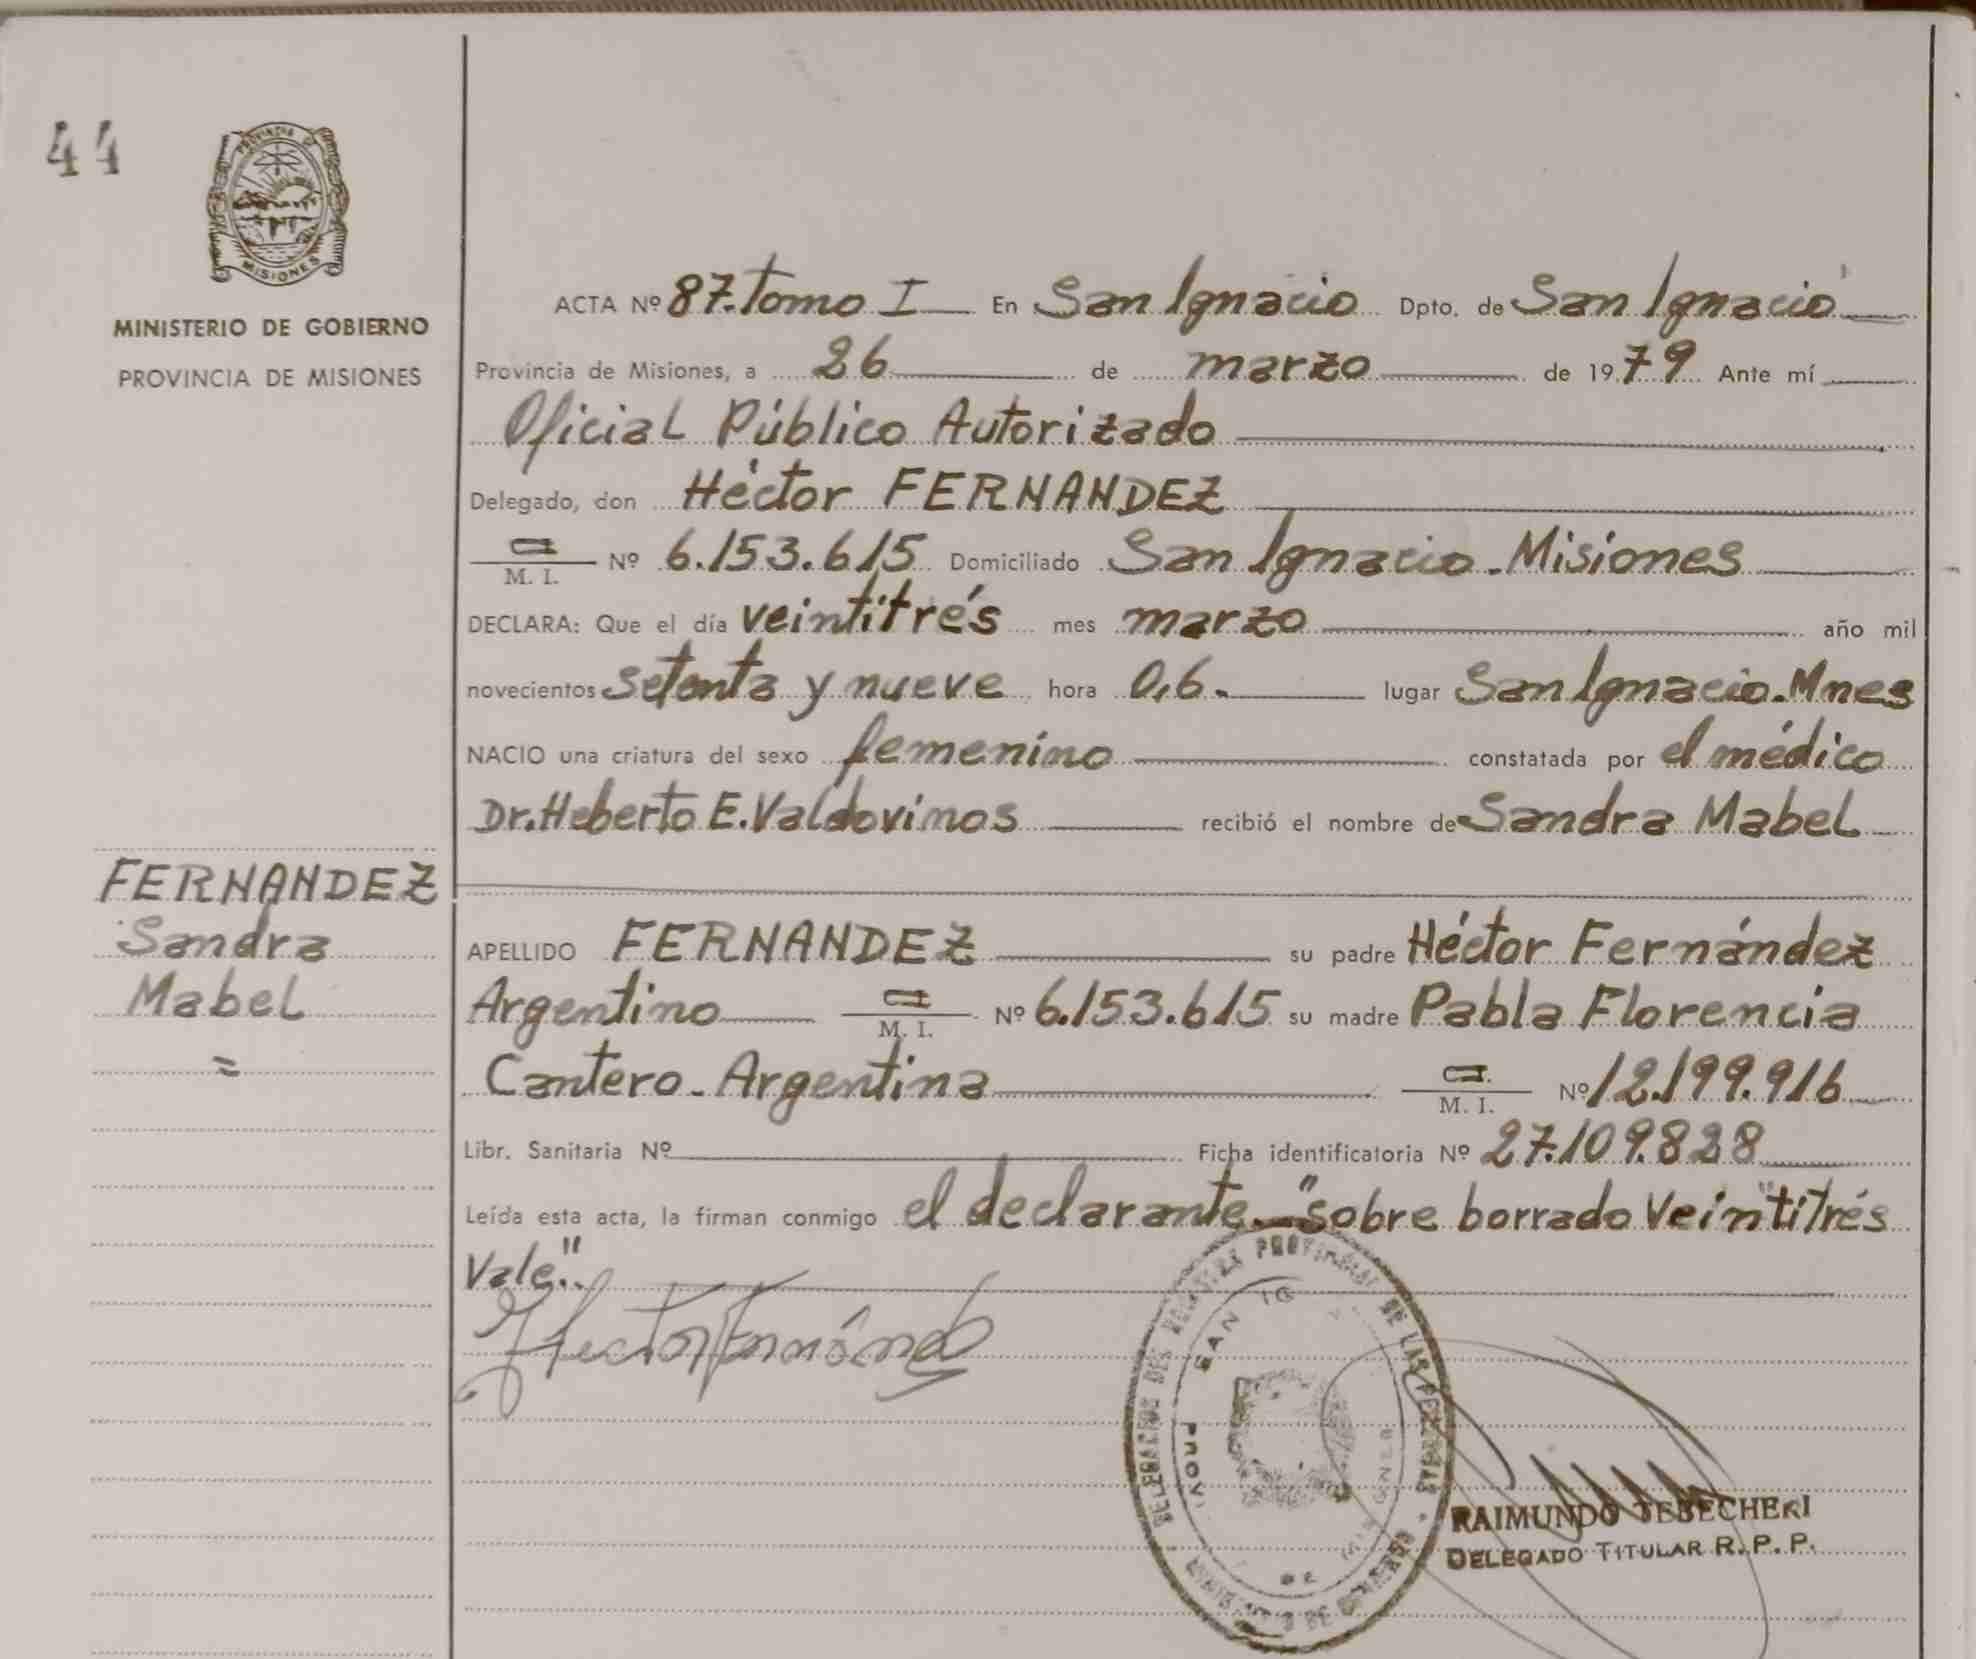 44
PROVINCIA DE
MISIONES
MINISTERIO DE GOBIERNO
PROVINCIA DE MISIONES
ACTA Nº 87. Tomo I En San Ignacio Dpto. de San Ignacio
Provincia de Misiones, a 26 de marzo de 1979 Ante mí
Oficial Público Autorizado
Delegado, don Héctor FERNANDEZ
CI
M. I. Nº 6.153.615 Domiciliado San Ignacio. Misiones
DECLARA: Que el día veintitrés mes marzo año mil
novecientos setenta y nueve hora 0,6. lugar San Ignacio. Mnes
NACIO una criatura del sexo femenino constatada por el médico
Dr. Heberto E. Valdovinos recibió el nombre de Sandra Mabel
FERNANDEZ
Sandra
Mabel
=
APELLIDO FERNANDEZ su padre Héctor Fernández
Argentino CI
M. I. Nº 6.153.615 su madre Pabla Florencia
Cantero. Argentina CI.
M. I. Nº 12.199.916
Libr. Sanitaria Nº Ficha identificatoria Nº 27.109.828
Leída esta acta, la firman conmigo el declarante. "sobre borrado Veintitrés
Vale".
Hector Fernández
DELEGACION DEL REGISTRO PROVINCIAL DE LAS PERSONAS
SAN IG
PROV. DE MISIONES
MINISTERIO DE GOBIERNO
RAIMUNDO TEBECHERI
DELEGADO TITULAR R. P. P.